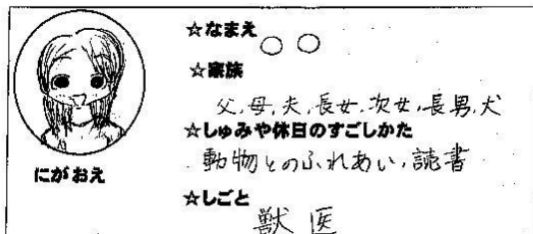 ☆なまえ
○ ○
☆家族
父,母,夫,長女,次女,長男,犬
☆しゅみや休日のすごしかた
動物とのふれあい,読書
にがおえ
☆しごと
獣医